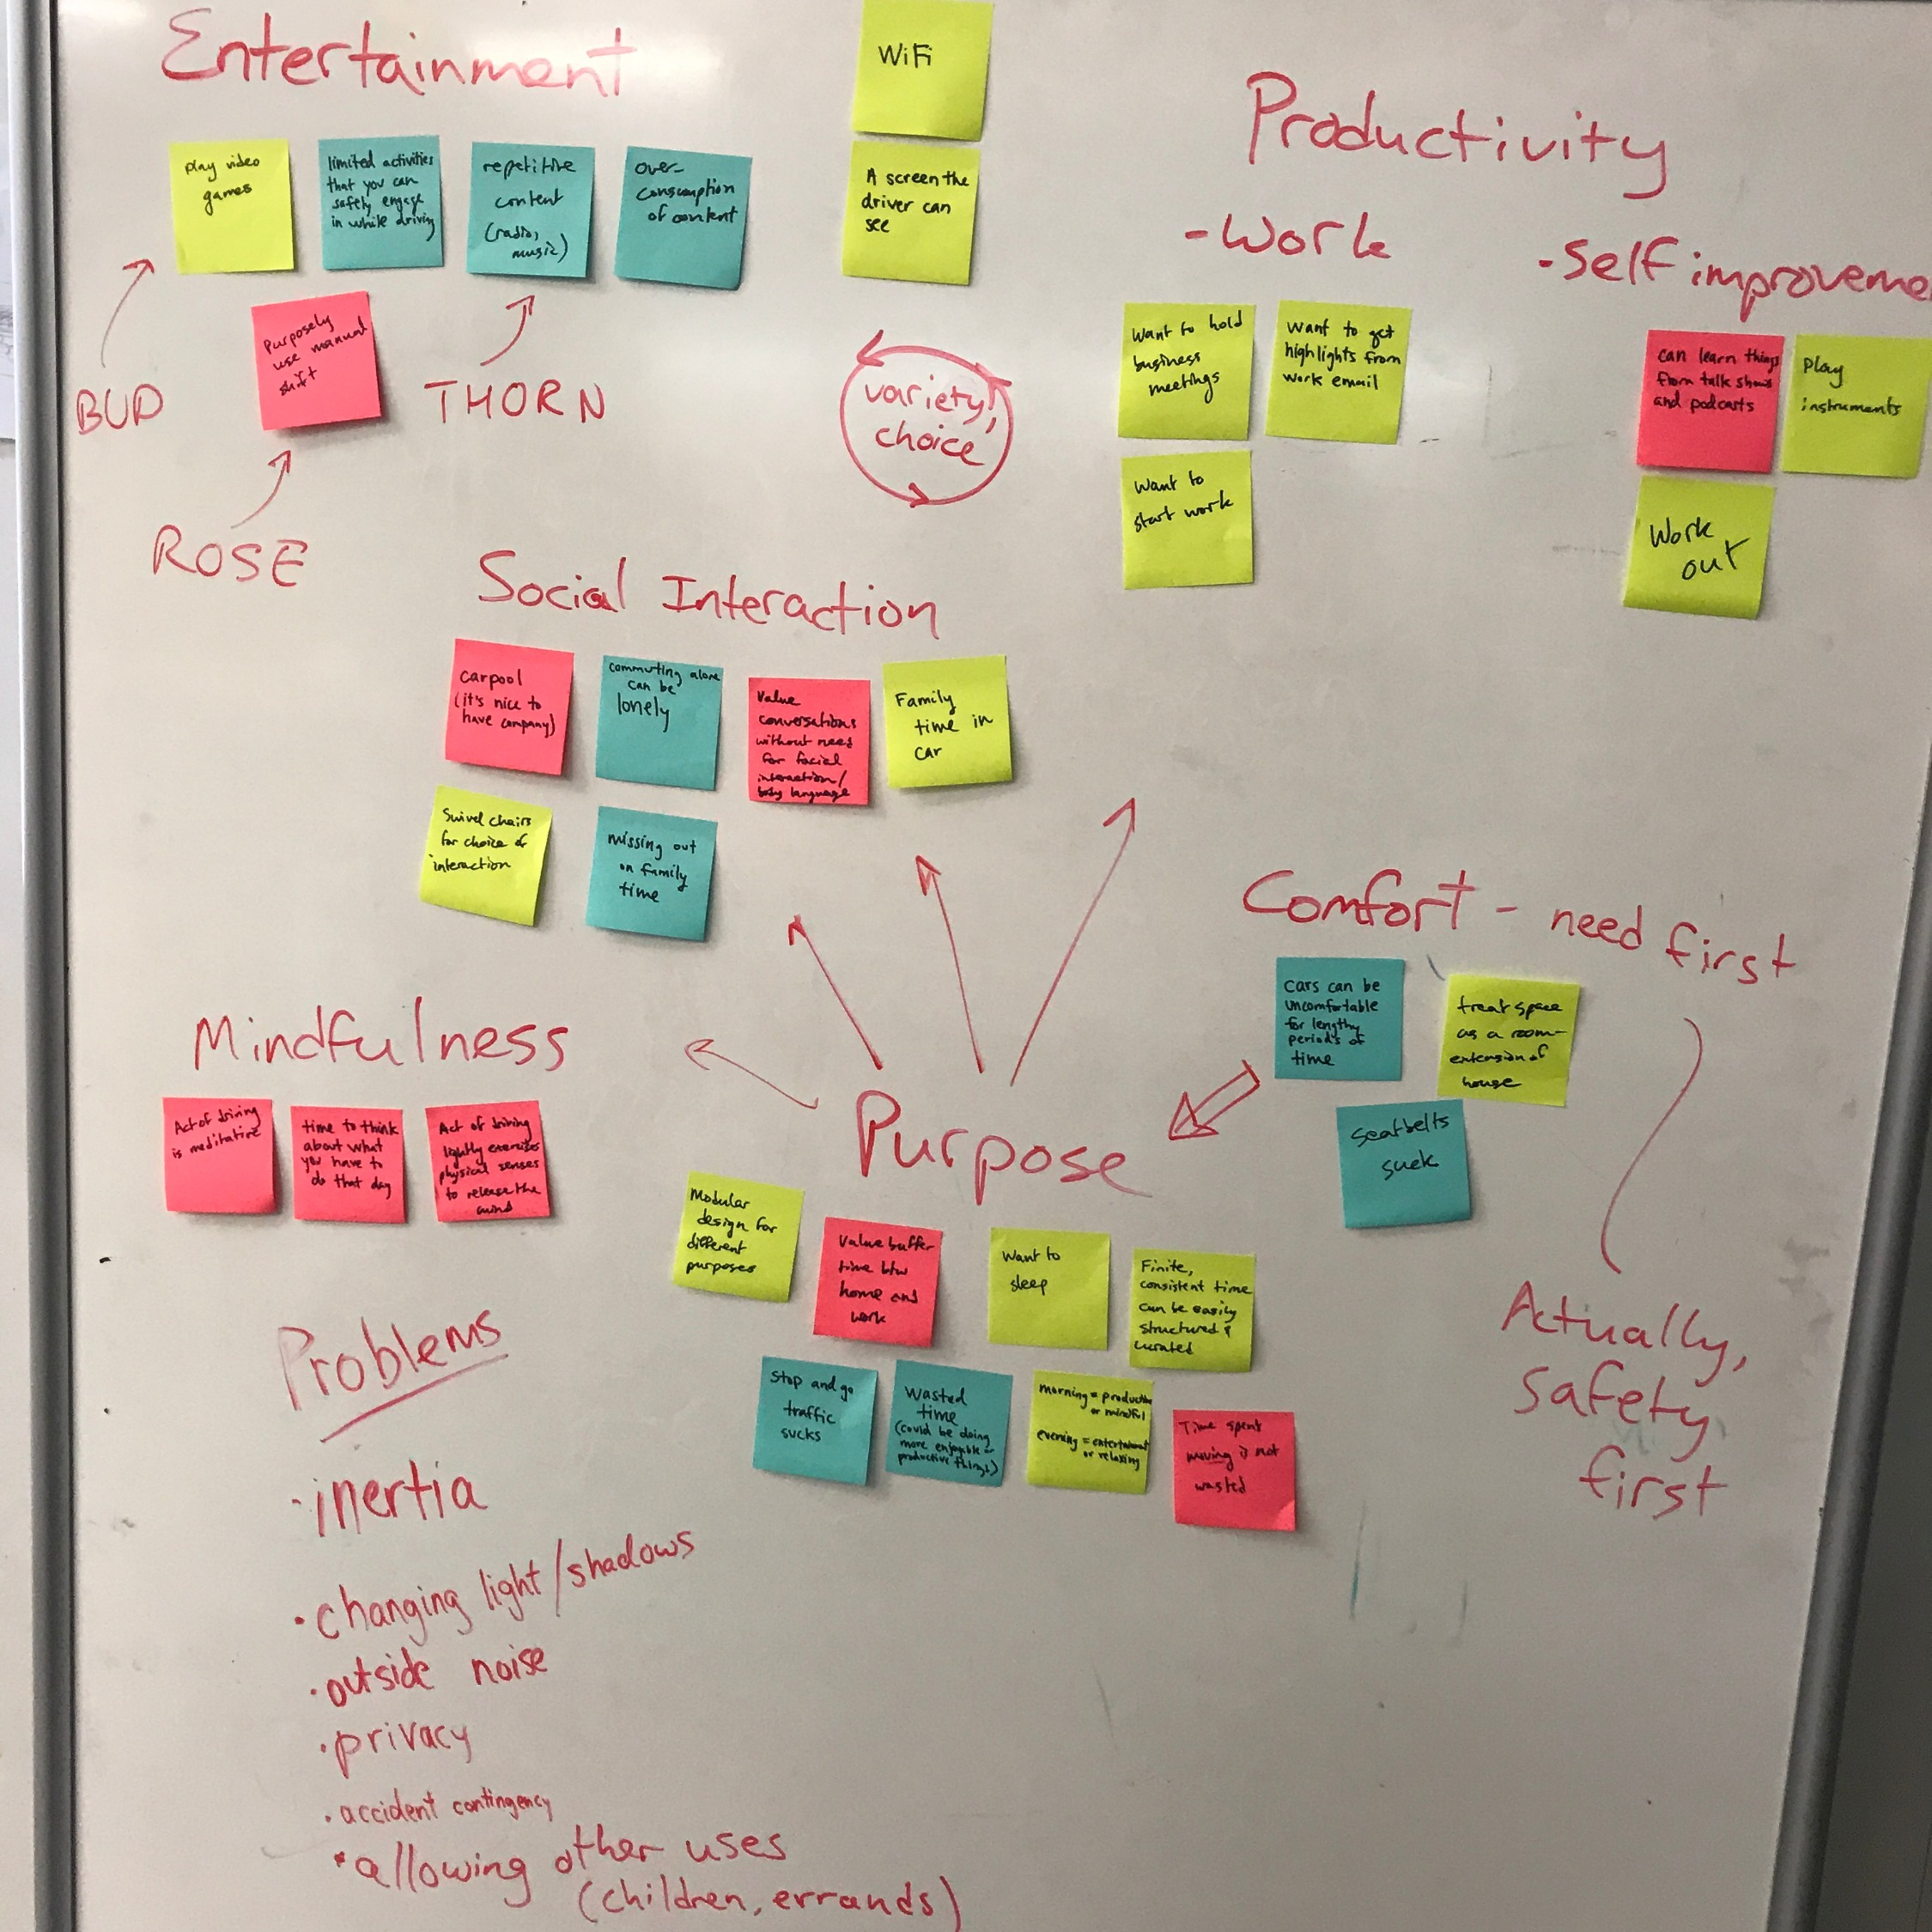 Entertainment
play video
games
limited activities
that you can
safely engage
in while driving
repetitive
content
(radio,
music)
over-
consumption
of content
WiFi
A screen the
driver can
see
Purposely
use manual
shift
BUD
THORN
ROSE
variety,
choice
Productivity
- Work
Want to hold
business
meetings
Want to get
highlights from
work email
Want to
start work
- Self improveme
can learn things
from talk shows
and podcasts
Play
instruments
Work
out
Social Interaction
carpool
(it's nice to
have company)
commuting alone
can be
lonely
Value
conversations
without need
for facial
interaction/
body language
Family
time in
car
Swivel chairs
for choice of
interaction
missing out
on family
time
Comfort - need first
Cars can be
uncomfortable
for lengthy
periods of
time
treat space
as a room-
extension of
house
Seatbelts
suck
Actually,
safety
first
Mindfulness
Act of driving
is meditative
time to think
about what
you have to
do that day
Act of driving
lightly exercises
physical senses
to release the
mind
Purpose
Modular
design for
different
purposes
Value buffer
time btw
home and
work
Want to
sleep
Finite,
consistent time
can be easily
structured &
curated
Stop and go
traffic
sucks
Wasted
time
(could be doing
more enjoyable or
productive things)
morning = productive
or mindful
evening = entertainment
or relaxing
Time spent
moving is not
wasted
Problems
· inertia
· changing light/shadows
· outside noise
· privacy
· accident contingency
· allowing other uses
(children, errands)